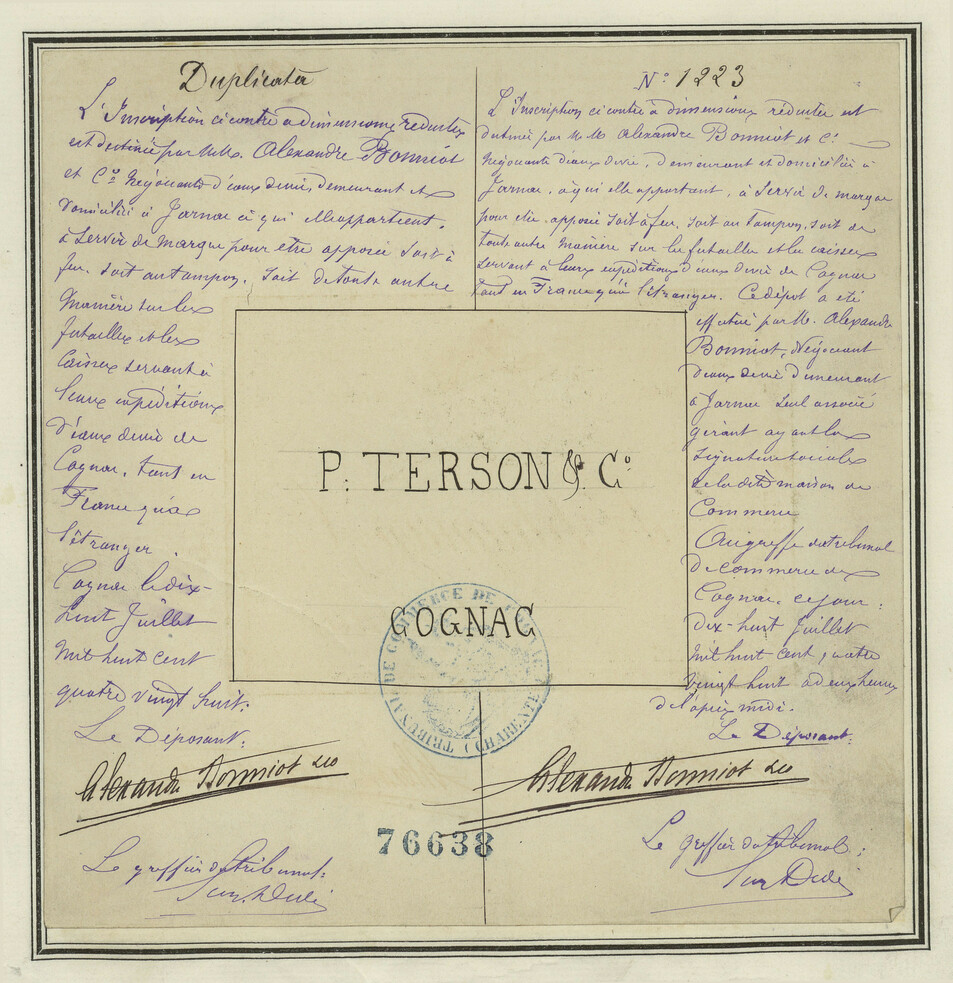 Duplicata
L'Inscription ci contre à dimensions réduites
est destinée par MM. Alexandre Bonniot
et Cie Négociants d'eaux devie, demeurant et
domiciliés à Jarnac à qui elle appartient,
à servir de marque pour être apposée soit à
feu, soit au tampon, soit de toute autre
Manière sur les
futailles et les
Caisses servant à
leurs expéditions
d'eaux devie de
Cognac, tant en
France qu'à
l'étranger.
Cognac le dix-
huit Juillet
mil huit cent
quatre vingt huit.
Le Déposant:
Alexandre Bonniot &co
Le greffier du tribunal:
N° 1223
L'Inscription ci contre à dimensions réduites est
destinée par MM Alexandre Bonniot et Cie
Négociants d'eaux devie, demeurant et domiciliés à
Jarnac, à qui elle appartient, à servir de marque
pour être apposée soit à feu, soit au Tampon, soit de
toute autre Manière sur les futailles et les caisses
servant à leurs expéditions d'eaux devie de Cognac
tant en France qu'à l'étranger. Ce dépôt a été
effectué par M. Alexandre
Bonniot, Négociant
d'eaux devie demeurant
à Jarnac seul associé
gérant ayant la
signature sociale
de la dite maison de
Commerce
Au greffe du tribunal
de commerce de
Cognac, ce jour:
Dix-huit Juillet
mil huit cent quatre
vingt huit à deux heures
de l'après midi.
Le Déposant:
Alexandre Bonniot &co
Le greffier du tribunal:
P. TERSON & Co
COGNAC
TRIBUNAL DE COMMERCE DE COGNAC (CHARENTE)
76638